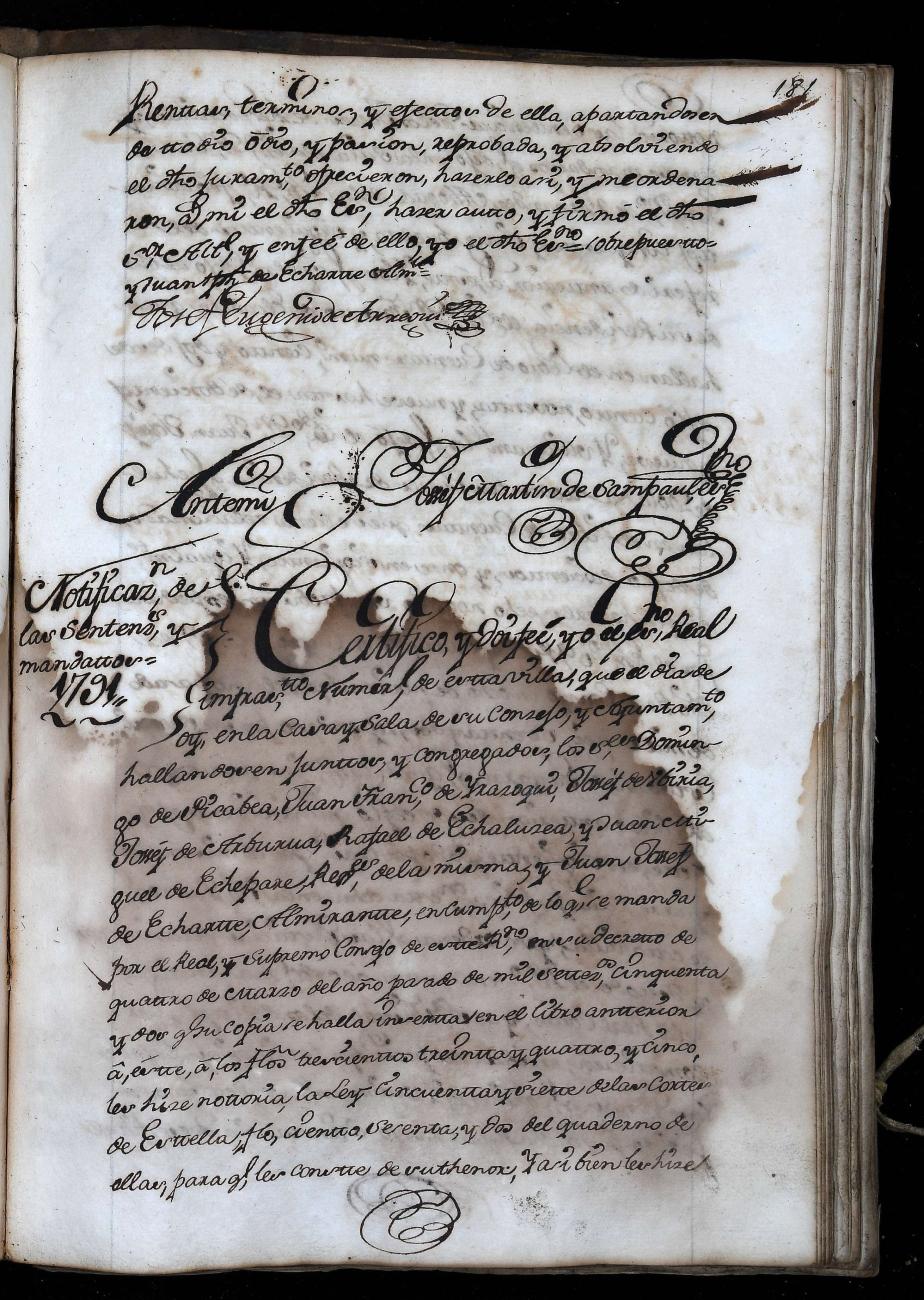 181
Renttas, terminos, y efecttos de ella, apartandosen
de ttodio Odio, y pasion, reprobada, y absolviendo
el dho juramto, ofrecieron, hazerlo asi, y me ordena
ron, a mi el dho Esno, hazer autto, y firmó el dho
Sor Alle, y en feé de ello, yo el dho Esno = sobrepuestto=
y Juan Jph de Echartte Almte=
Joseph Eugenio de Arregui
Antemi Joseph Marttin de Sampaul Esno
Notificazn, de
las Senttens, y
mandattos=
1791
Certtifico, y doi feé, yo el esno, Real
Numerl, de estta villa, que el dia de
oy, en la Casa y Sala de su Consejo, y Ayuntamto,
hallandosen junttos, y congregados, los Sres Domin-
go de Picabea, Juan Franco de Yrazoqui, Joseph de Ybiria,
Joseph de Arburua, Rafael de Echaluzea, y Juan Mi-
guel de Echepare, Regres, de la misma, y Juan Joseph
de Echartte, Almirantte, en Cumpto, de lo q, se manda
por el Real, y Supremo Consejo de estte Rno, en su decretto de
quattro de Marzo del año pasado de mil settezos, Cinquenta
y dos q su copia se halla inserttas en el Libro antterior
â, estte, â, los flos trescienttos treintta y quattro, y Cinco,
les hize nottoria, la Ley Cincuentta y siette de las Corttes
de Esttella, flo, cientto, Sesenta, y dos del quaderno de
ellas, para q, les constte de su thenor, Y asi bien les hize